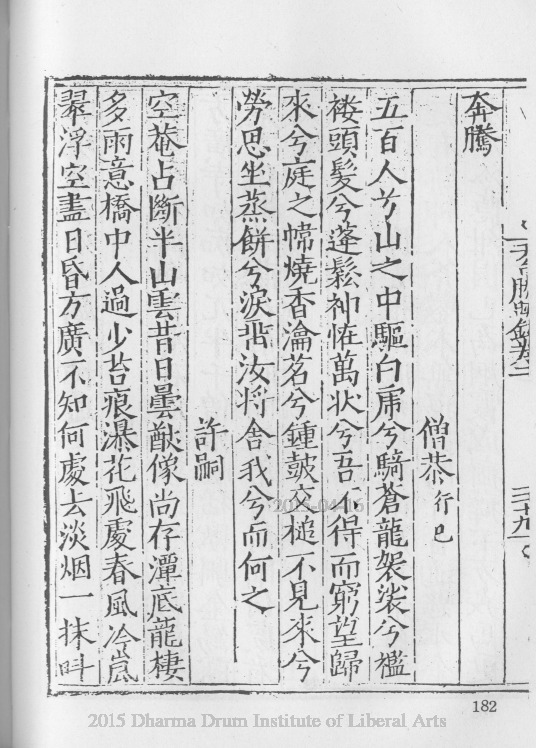 天台勝蹟錄卷三
三十九
奔騰
僧恭行已
五百人兮山之中驅白乕兮騎蒼龍袈裟兮襤
褸頭髮兮蓬鬆神怪萬状兮吾不得而窮望歸
來兮庭之帰燒香瀹茗兮鍾皷交槌不見來兮
勞思坐蒸餅兮淚汝将舍我兮而何之
許嗣
空菴占斷半山雲昔日曇猷像尚存潭底龍棲
多雨意橋中人過少苔痕瀑花飛處春風冷嵐
翠浮空盡日昏方廣不知何處去淡烟一抹
182
2015-04-16
2015 Dharma Drum Institute of Liberal Arts